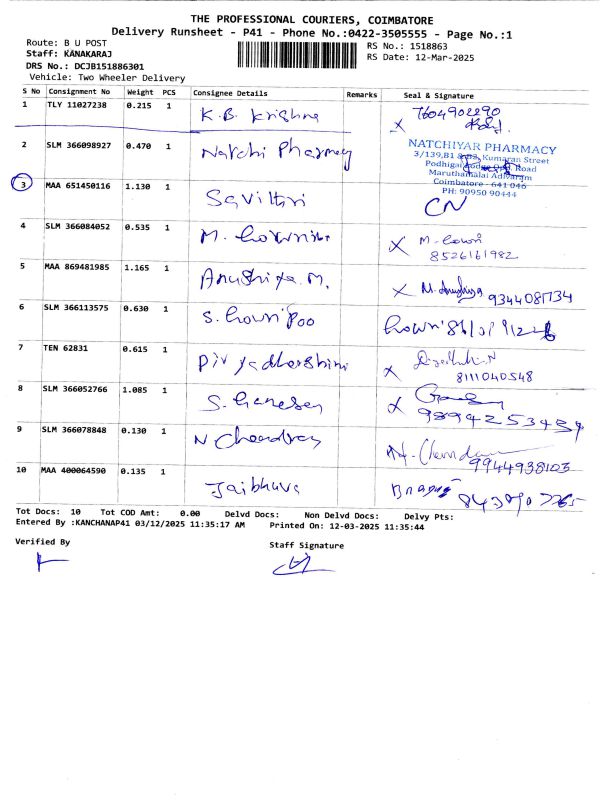 THE PROFESSIONAL COURIERS, COIMBATORE
Delivery Runsheet - P41 - Phone No.:0422-3505555 - Page No.:1
Route: B U POST
RS No.: 1518863
Staff: KANAKARAJ
RS Date: 12-Mar-2025
DRS No.: DCJB151886301
Vehicle: Two Wheeler Delivery
S No Consignment No Weight PCS Consignee Details Remarks Seal & Signature
1 TLY 11027238 0.215 1 K.B. Krishna 7604902290
X
2 SLM 366098927 0.470 1 Natchi Pharmacy
NATCHIYAR PHARMACY
3/139,B1 Kumaran Street
Podhigai Road
Maruthamalai Adivaram
Coimbatore - 641 046
PH: 90950 90444
3 MAA 651450116 1.130 1 Savithri CN
4 SLM 366084052 0.535 1 M. X M. Gowri
8526161982
5 MAA 869481985 1.165 1 Anushiya M. X M. Anushiya 9344081734
6 SLM 366113575 0.630 1 S. Gowri Poo Gowri
7 TEN 62831 0.615 1 Divyadharshini X
8111040548
8 SLM 366052766 1.085 1 S. Ganesan X
9894253454
9 SLM 366078848 0.130 1 N Chandran N. Chandran
9944938103
10 MAA 400064590 0.135 1 Jaibhuva
Tot Docs: 10 Tot COD Amt: 0.00 Delvd Docs: Non Delvd Docs: Delvy Pts:
Entered By :KANCHANAP41 03/12/2025 11:35:17 AM Printed On: 12-03-2025 11:35:44
Verified By
Staff Signature